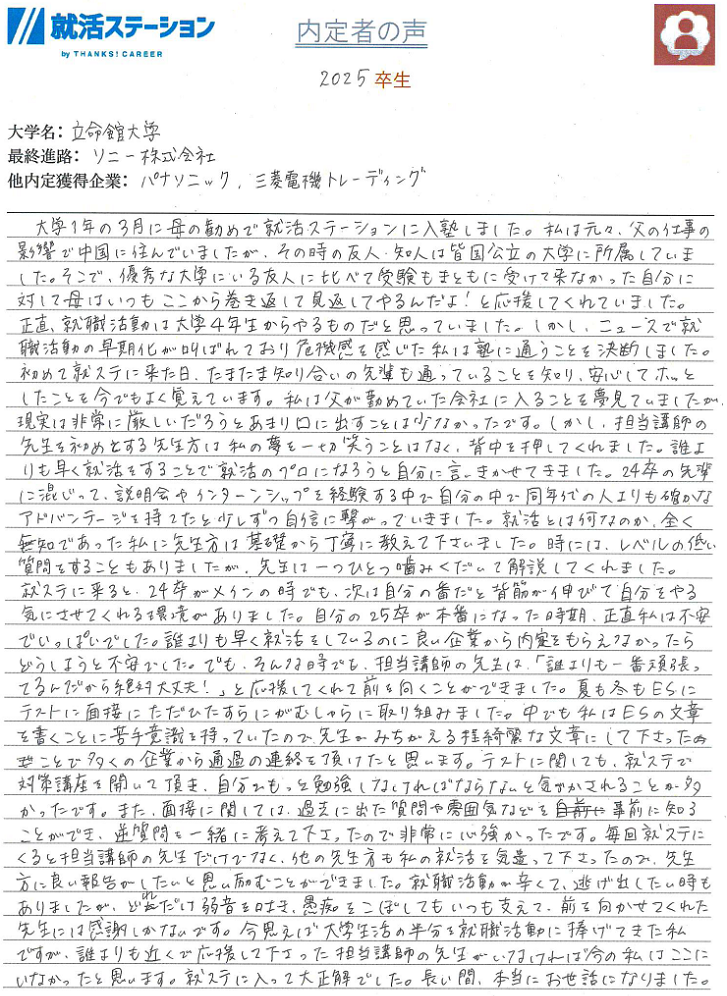 就活ステーション
by THANKS! CAREER
内定者の声
2025 卒生
大学名：立命館大学
最終進路：ソニー株式会社
他内定獲得企業：パナソニック，三菱電機トレーディング
大学1年の3月に母の勧めで就活ステーションに入塾しました。私は元々、父の仕事の
影響で中国に住んでいましたが、その時の友人・知人は皆国公立の大学に所属していま
した。そこで、優秀な大学にいる友人に比べて受験もまともに受けて来なかった自分に
対して母はいつもここから巻き返して見返してやるんだよ！と応援してくれていました。
正直、就職活動は大学4年生からやるものだと思っていました。しかし、ニュースで就
職活動の早期化が叫ばれており危機感を感じた私は塾に通うことを決断しました。
初めて就ステに来た日、たまたま知り合いの先輩も通っていることを知り、安心してホッと
したことを今でもよく覚えています。私は父が勤めていた会社に入ることを夢見ていましたが、
現実は非常に厳しいだろうとあまり口に出すことは少なかったです。しかし、担当講師の
先生を初めとする先生方は私の夢を一切笑うことはなく、背中を押してくれました。誰よ
りも早く就活をすることで就活のプロになろうと自分に言いきかせてきました。24卒の先輩
に混じって、説明会やインターンシップを経験する中で自分の中で同年代の人よりも確かな
アドバンテージを持てたと少しずつ自信に繋がっていきました。就活とは何なのか、全く
無知であった私に先生方は基礎から丁寧に教えて下さいました。時には、レベルの低い
質問をすることもありましたが、先生は一つひとつ噛みくだいて解説してくれました。
就ステに来ると、24卒がメインの時でも、次は自分の番だと背筋が伸びて自分をやる
気にさせてくれる環境がありました。自分の25卒が本番になった時期、正直私は不安
でいっぱいでした。誰よりも早く就活をしているのに良い企業から内定をもらえなかったら
どうしようと不安でした。でも、そんな時でも、担当講師の先生は、「誰よりも一番頑張っ
てるんだから絶対大丈夫！」と応援してくれて前を向くことができました。夏も冬もESに
テストに面接にただひたすらにがむしゃらに取り組みました。中でも私はESの文章
を書くことに苦手意識を持っていたので、先生がみちがえる程綺麗な文章にして下さった
ことで多くの企業から通過の連絡を頂けたと思います。テストに関しても、就ステで
対策講座を開いて頂き、自分でもっと勉強しなければならないと気づかされることが多
かったです。また、面接に関しては、過去に出た質問や雰囲気などを自前に事前に知る
ことができ、逆質問を一緒に考えて下さったので非常に心強かったです。毎回就ステに
くると担当講師の先生だけでなく、他の先生方も私の就活を気遣って下さったので、先生
方に良い報告がしたいと思い励むことができました。就職活動が辛くて、逃げ出したい時も
ありましたが、どれだけ弱音を吐き、愚痴をこぼしてもいつも支えて、前を向かせてくれた
先生には感謝しかないです。今思えば大学生活の半分を就職活動に捧げてきた私
ですが、誰よりも近くで応援して下さった担当講師の先生がいなければ今の私はここに
いなかったと思います。就ステに入って大正解でした。長い間、本当にお世話になりました。